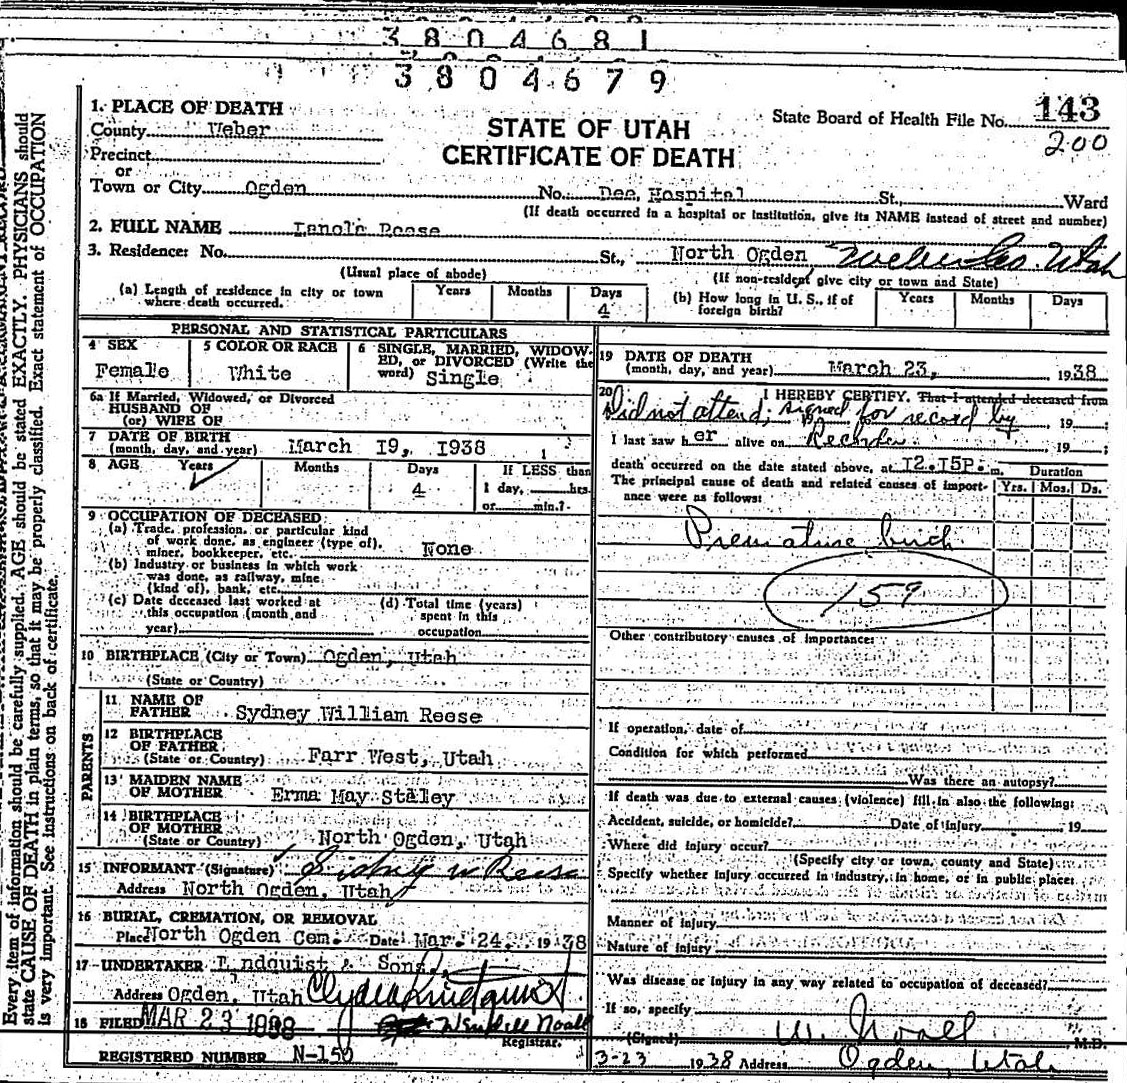 3804681
3804679
1. PLACE OF DEATH
County Weber
Precinct
or
Town or City Ogden No. Dee Hospital St., Ward
STATE OF UTAH
CERTIFICATE OF DEATH
State Board of Health File No. 143
200
(If death occurred in a hospital or institution, give its NAME instead of street and number)
2. FULL NAME Reese
3. Residence: No. St., North Ogden Weber Co. Utah
(Usual place of abode) (If non-resident give city or town and State)
(a) Length of residence in city or town where death occurred. Years Months Days 4
(b) How long in U. S., if of foreign birth? Years Months Days
PERSONAL AND STATISTICAL PARTICULARS
4 SEX Female
5 COLOR OR RACE White
6 SINGLE, MARRIED, WIDOWED, or DIVORCED (Write the word) Single
6a If Married, Widowed, or Divorced
HUSBAND OF
(or) WIFE OF
7 DATE OF BIRTH
(month, day, and year) March 19, 1938
8 AGE Years Months Days 4 If LESS than 1 day, hrs. or min.?
9 OCCUPATION OF DECEASED
(a) Trade, profession, or particular kind
of work done, as engineer (type of),
miner, bookkeeper, etc. None
(b) Industry or business in which work
was done, as railway, mine
(kind of), bank, etc.
(c) Date deceased last worked at
this occupation (month and
year)
(d) Total time (years)
spent in this
occupation
10 BIRTHPLACE (City or Town) Ogden, Utah
(State or Country)
PARENTS
11 NAME OF
FATHER Sydney William Reese
12 BIRTHPLACE
OF FATHER
(State or Country) Farr West, Utah
13 MAIDEN NAME
OF MOTHER Erma May Staley
14 BIRTHPLACE
OF MOTHER
(State or Country) North Ogden, Utah
15 INFORMANT (Signature) Sidney W Reese
Address North Ogden, Utah
16 BURIAL, CREMATION, OR REMOVAL
Place North Ogden Cem. Date Mar. 24, 1938
17 UNDERTAKER Lindquist & Sons,
Address Ogden, Utah Clyde Lindquist
18 FILED MAR 23 1938 Wendell Noall
Registrar.
REGISTERED NUMBER N-150
19 DATE OF DEATH
(month, day, and year) March 23, 1938
20 I HEREBY CERTIFY. That I attended deceased from
Did not attend; signed for record by 19
I last saw her alive on 19
death occurred on the date stated above, at 12.15P. m.
The principal cause of death and related causes of importance were as follows:
Duration
Yrs. Mos. Ds.
Premature birth
159
Other contributory causes of importance:
If operation, date of
Condition for which performed
Was there an autopsy?
If death was due to external causes (violence) fill in also the following:
Accident, suicide, or homicide? Date of injury 19
Where did injury occur?
(Specify city or town, county and State)
Specify whether injury occurred in industry, in home, or in public place:
Manner of injury
Nature of injury
Was disease or injury in any way related to occupation of deceased?
If so, specify
(Signed) W. Noall, M.D.
3-23 1938 Address Ogden, Utah
Every item of information should be carefully supplied. AGE should be stated EXACTLY. PHYSICIANS should
state CAUSE OF DEATH in plain terms, so that it may be properly classified. Exact statement of OCCUPATION
is very important. See instructions on back of certificate.